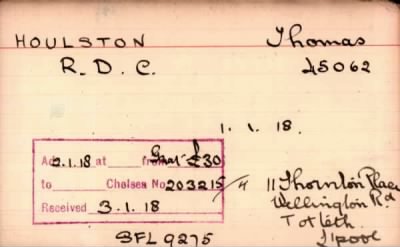 HOULSTON Thomas
R. D. C. 45062
1. 1. 18.
2.1.18 at from Grat £30
to Chelsea No 203215/4
Received 3.1.18
11 Thornton Place
Wellington Rd
Toxteth
L'pool
SFL 9275